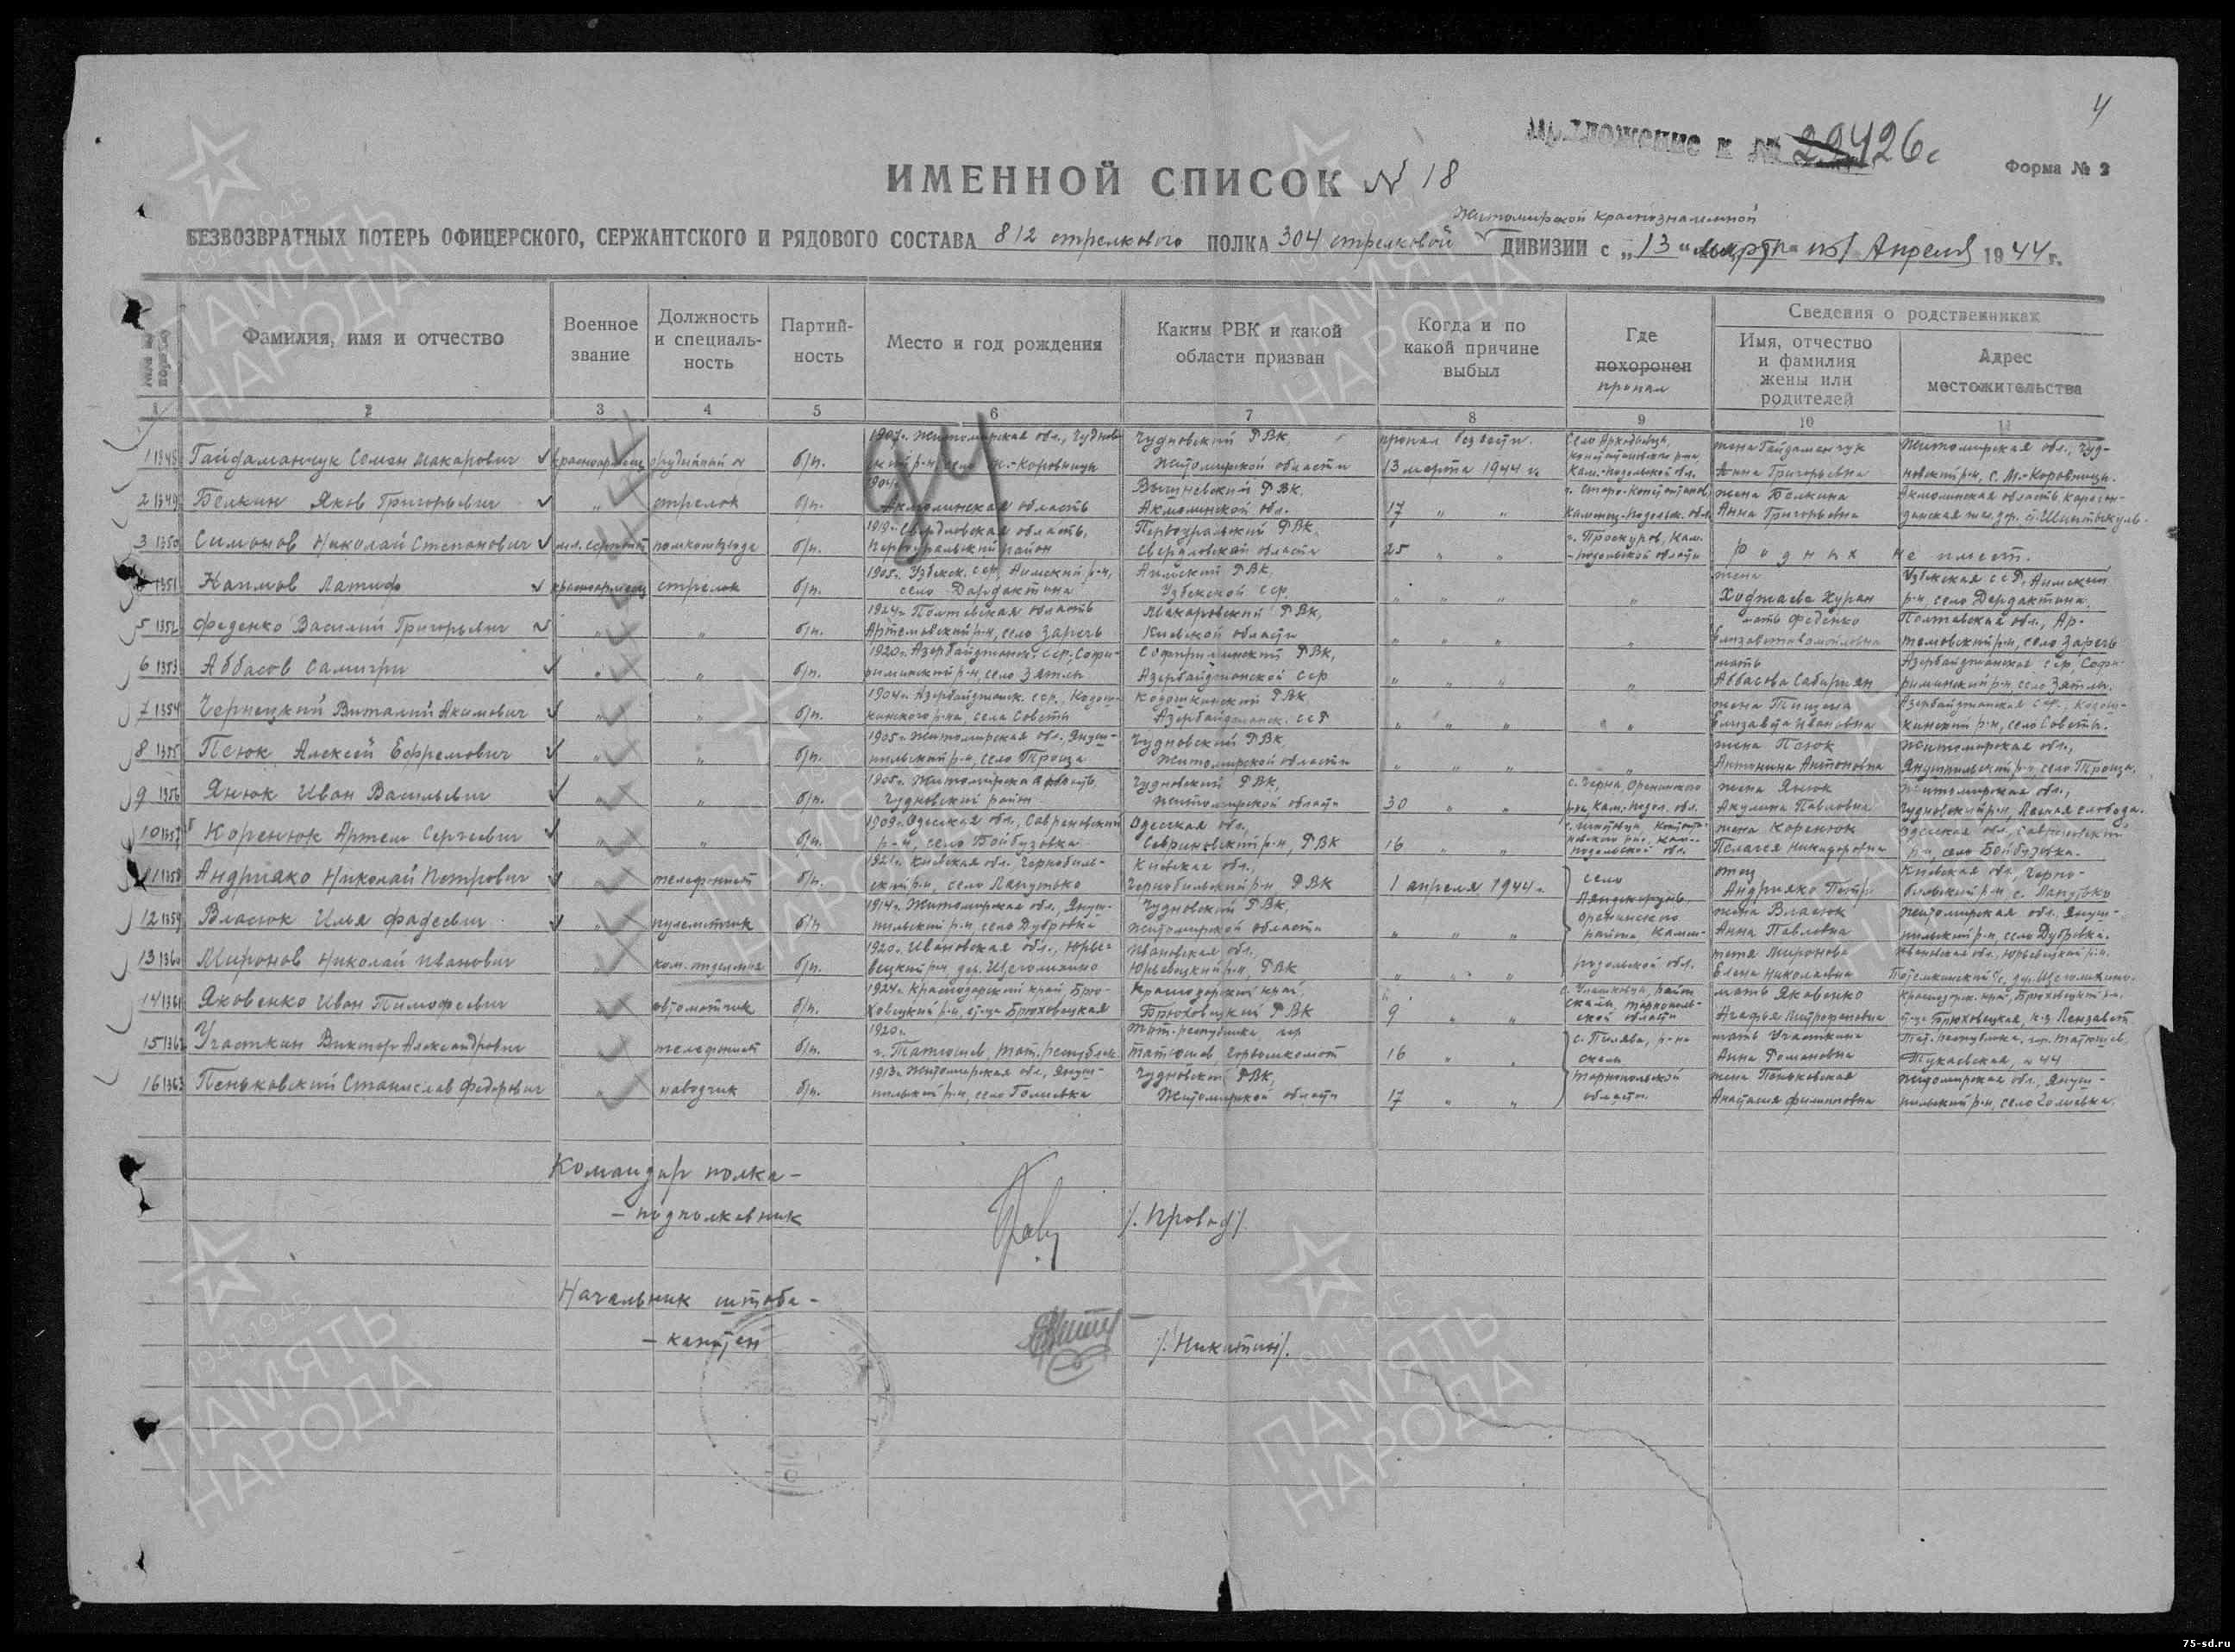 4
Приложение к № 29426с
ИМЕННОЙ СПИСОК № 18
Форма № 2
Житомирской краснознаменной
БЕЗВОЗВРАТНЫХ ПОТЕРЬ ОФИЦЕРСКОГО, СЕРЖАНТСКОГО И РЯДОВОГО СОСТАВА 812 стрелкового ПОЛКА 304 стрелковой ДИВИЗИИ с „13" марта по 1 Апреля 1944 г.
Фамилия, имя и отчество
Военное звание
Должность и специальность
Партийность
Место и год рождения
Каким РВК и какой области призван
Когда и по какой причине выбыл
Где похоронен
пропал
Сведения о родственниках
Имя, отчество и фамилия жены или родителей
Адрес местожительства
1 2 3 4 5 6 7 8 9 10 11
1 1348 Гайдаманчук Семен Макарович красноармеец б/п. 1907г. Житомирская обл., Чудновский р-н, село М.-Коровинцы Чудновский РВК, Житомирской области пропал без вести 13 марта 1944 г. жена Гайдаманчук Анна Григорьевна Житомирская обл., Чудновский р-н, с. М.-Коровинцы.
2 1349 Белкин Яков Григорьевич " стрелок б/п. Акмолинская область Вишневский РВК, Акмолинской обл. 17 " " г. Старо-Константинов, Каменец-Подольск. обл. жена Белкина Анна Григорьевна Акмолинская область
3 1350 Симонов Николай Степанович мл. сержант помкомвзвода б/п. 1919г. Свердловская область, Первоуральский район Первоуральский РВК, Свердловской области 25 " " г. Проскуров, Кам.-подольской области Родных не имеет.
4 1351 Каимов Латиф красноармеец стрелок б/п. 1905г. Узбекск. сср, Аимский р-н, село Дардактина Аимский РВК, Узбекской сср. " " " " жена Ходжаева Хуран Узбекская ССР, Аимский р-н, село Дардактина.
5 1352 Феденко Василий Григорьевич " " б/п. 1924г. Полтавская область Артемовский р-н, село Заречь Макаровский РВК, Киевской области " " " " мать Феденко Полтавская обл., Артемовский р-н, село Заречь
6 1353 Аббасов Самигри " " б/п. 1920г. Азербайджанск. сср, село Затлы РВК, Азербайджанской сср " " " " мать Аббасова Азербайджанская сср село Затлы.
7 1354 Чернецкий Виталий Акимович " " б/п. 1904г. Азербайджанск. сср, село Советы РВК, Азербайджанск. ссР " " " " жена Тишева Елизавета Ивановна Азербайджанская сср, село Советы.
8 1355 Псюк Алексей Ефремович " " б/п. 1905г. Житомирская обл. Янушпильский р-н, село Троща Чудновский РВК, Житомирской области " " " " жена Псюк Антонина Антоновна Житомирская обл., Янушпильский р-н, село Троща.
9 1356 Янюк Иван Васильевич " " б/п. 1905г. Житомирская область, Чудновский район Чудновский РВК, Житомирской области 30 " " жена Янюк Акулина Павловна Житомирская обл., Чудновский р-н, Лесная слобода.
10 1357 Коренюк Артем Сергеевич " " б/п. 1909г. Одесская обл., Савранский р-н, село Байбузовка Одесская обл., Савранский р-н, РВК 16 " " жена Коренюк Пелагея Никифоровна Одесская обл., Савранский р-н, село Байбузовка.
11 1358 Андрияко Николай Петрович " телефонист б/п. Киевская обл. Чернобыльский р-н, село Лапутько Киевская обл., Чернобыльский р-н, РВК 1 апреля 1944 г. село отец Андрияко Петр Киевская обл., Чернобыльский р-н с. Лапутько
12 1359 Власюк Илья Фадеевич " пулеметчик б/п 1914г. Житомирская обл., Янушпильский р-н, село Дубровка Чудновский РВК, Житомирской области " " " Оренинского района Каменподольской обл. жена Власюк Анна Павловна Житомирская обл. Янушпильский р-н, село Дубровка.
13 1360 Миронов Николай Иванович " ком. отделения б/п. 1920г. Ивановская обл., Юрьевецкий р-н, дер. Щеголихино Ивановская обл., Юрьевецкий р-н, РВК " " " тетя Миронова Елена Николаевна Ивановская обл., Юрьевецкий р-н, дер. Щеголихино.
14 1361 Яковенко Иван Тимофеевич " автоматчик б/п. 1924г. Краснодарский край Брюховецкий р-н, ст-ца Брюховецкая Краснодарский край Брюховецкий РВК 9 " " мать Яковенко Агафья Митрофановна Краснодарск. край, Брюховецкий р-н, ст-ца Брюховецкая
15 1362 Участкин Виктор Александрович телефонист б/п. 1920г. г. Татюшев, тат. республик. тат. республика гор. Татюшев 16 " " с. Пилява, р-на скала тарнопольской области. мать Участкина Анна Романовна Тат. республика, гор. Татюшев, Тукаевская, № 44
16 1363 Пеньковский Станислав Федорович наводчик б/п. 1913г. Житомирская обл., Янушпильский р-н, село Галиевка Чудновский РВК, Житомирской области 17 " " жена Пеньковская Анастасия Филипповна Житомирская обл., Янушпильский р-н, село Галиевка.
Командир полка –
– подполковник /. Провад/.
Начальник штаба –
– капитан /. Никитин/.
1941-1945
ПАМЯТЬ НАРОДА
75-sd.ru